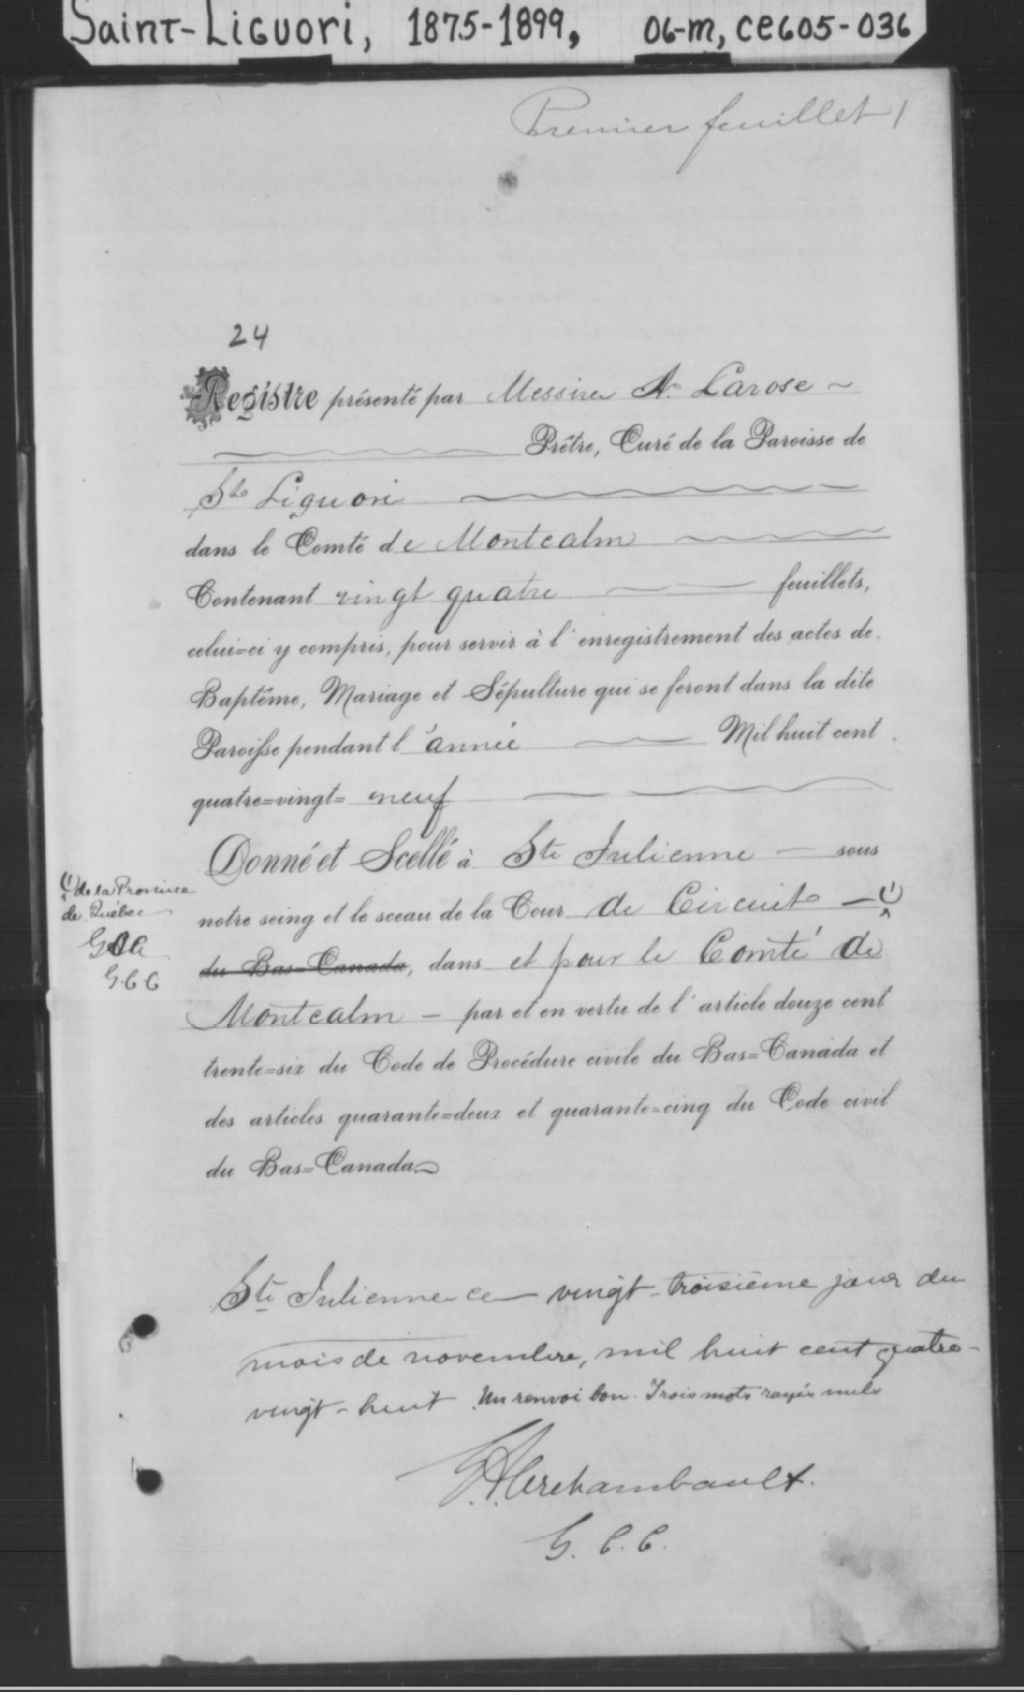 Saint-Liguori, 1875-1899, 06-m, ce605-036
Premier feuillet /
24
Registre présenté par Messire A. Larose ~
Prêtre, Curé de la Paroisse de
St Liguori
dans le Comté de Montcalm
Contenant vingt quatre feuillets,
celui=ci y compris, pour servir à l'enregistrement des actes de
Baptême, Mariage et Sépulture qui se feront dans la dite
Paroisse pendant l'année Mil huit cent
quatre=vingt= neuf
Donné et Scellé à Ste Julienne — sous
notre seing et le sceau de la Cour de Circuit — (1)
(1) de la Province
de Québec
G.C.C
du Bas=Canada, dans et pour le Comté de
Montcalm — par et en vertu de l'article douze cent
trente=six du Code de Procédure civile du Bas=Canada et
des articles quarante=deux et quarante=cinq du Code civil
du Bas=Canada
Ste Julienne ce vingt-troisième jour du
mois de novembre, mil huit cent quatre-
vingt-huit. Un renvoi bon. Trois mots rayés nuls
Archambault.
G. C. C.